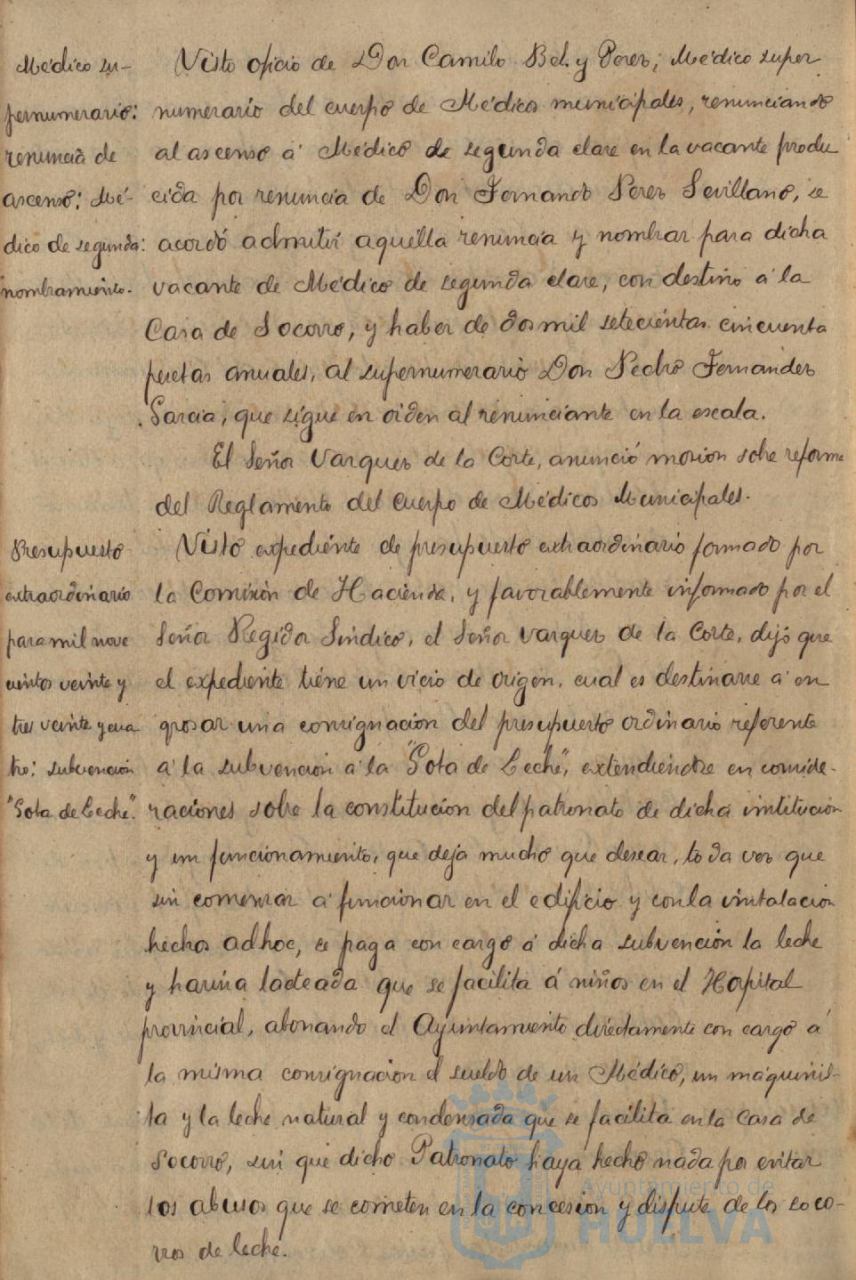 Médico su-
pernumerario:
renuncia de
ascenso: Mé-
dico de segunda:
nombramiento.
Visto oficio de Don Camilo Bel y Perez, Médico super
numerario del cuerpo de Médicos municipales, renunciando
al ascenso á Médico de segunda clase en la vacante produ
cida por renuncia de Don Fernando Perez Sevillano, se
acordó admitir aquella renuncia y nombrar para dicha
vacante de Médico de segunda clase, con destino á la
Casa de Socorro, y haber de dos mil setecientas cincuenta
pesetas anuales, al supernumerario Don Pedro Fernandez
Garcia, que sigue en orden al renunciante en la escala.
El Señor Vazquez de la Corte, anunció mocion sobre reforma
del Reglamento del Cuerpo de Médicos Municipales.
Presupuesto
extraordinario
para mil nove
cientos veinte y
tres veinte y cua
tro: subvención
"Gota de Leche".
Visto expediente de presupuesto extraordinario formado por
la Comisión de Hacienda, y favorablemente informado por el
Señor Regidor Síndico, el Señor Vazquez de la Corte, dijo que
el expediente tiene un vicio de origen, cual es destinarse á en
grosar una consignacion del presupuesto ordinario referente
á la subvencion á la "Gota de Leche", extendiendose en conside-
raciones sobre la constitucion del patronato de dicha institucion
y su funcionamiento, que deja mucho que desear, toda vez que
sin comenzar á funcionar en el edificio y con la instalacion
hechos adhoc, se paga con cargo á dicha subvención la leche
y harina lacteada que se facilita á niños en el Hospital
provincial, abonando el Ayuntamiento directamente con cargo á
la misma consignacion el sueldo de un Médico, un maquinis-
ta y la leche natural y condensada que se facilita en la Casa de
Socorro, sin que dicho Patronato haya hecho nada por evitar
los abusos que se cometen en la concesion y disfrute de los soco-
rros de leche.
Ayuntamiento de
HUELVA